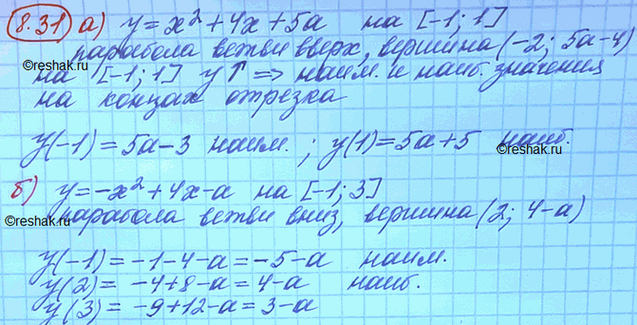 8.31 а) y = x² + 4x + 5a на [-1; 1]
парабола ветви вверх, вершина (-2; 5a-4)
на [-1; 1] y↑ => наим. и наиб. значения
на концах отрезка
©reshak.ru
y(-1) = 5a-3 наим. ; y(1) = 5a+5 наиб.
©reshak.ru
б) y = -x² + 4x - a на [-1; 3]
©reshak.ru
парабола ветви вниз, вершина (2; 4-a)
y(-1) = -1-4-a = -5-a наим.
y(2) = -4+8-a = 4-a наиб.
y(3) = -9+12-a = 3-a